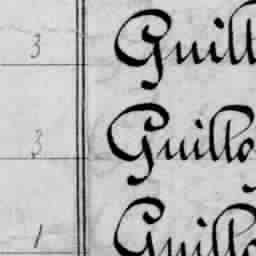 3 Guill
3 Guillo
1 Guillo